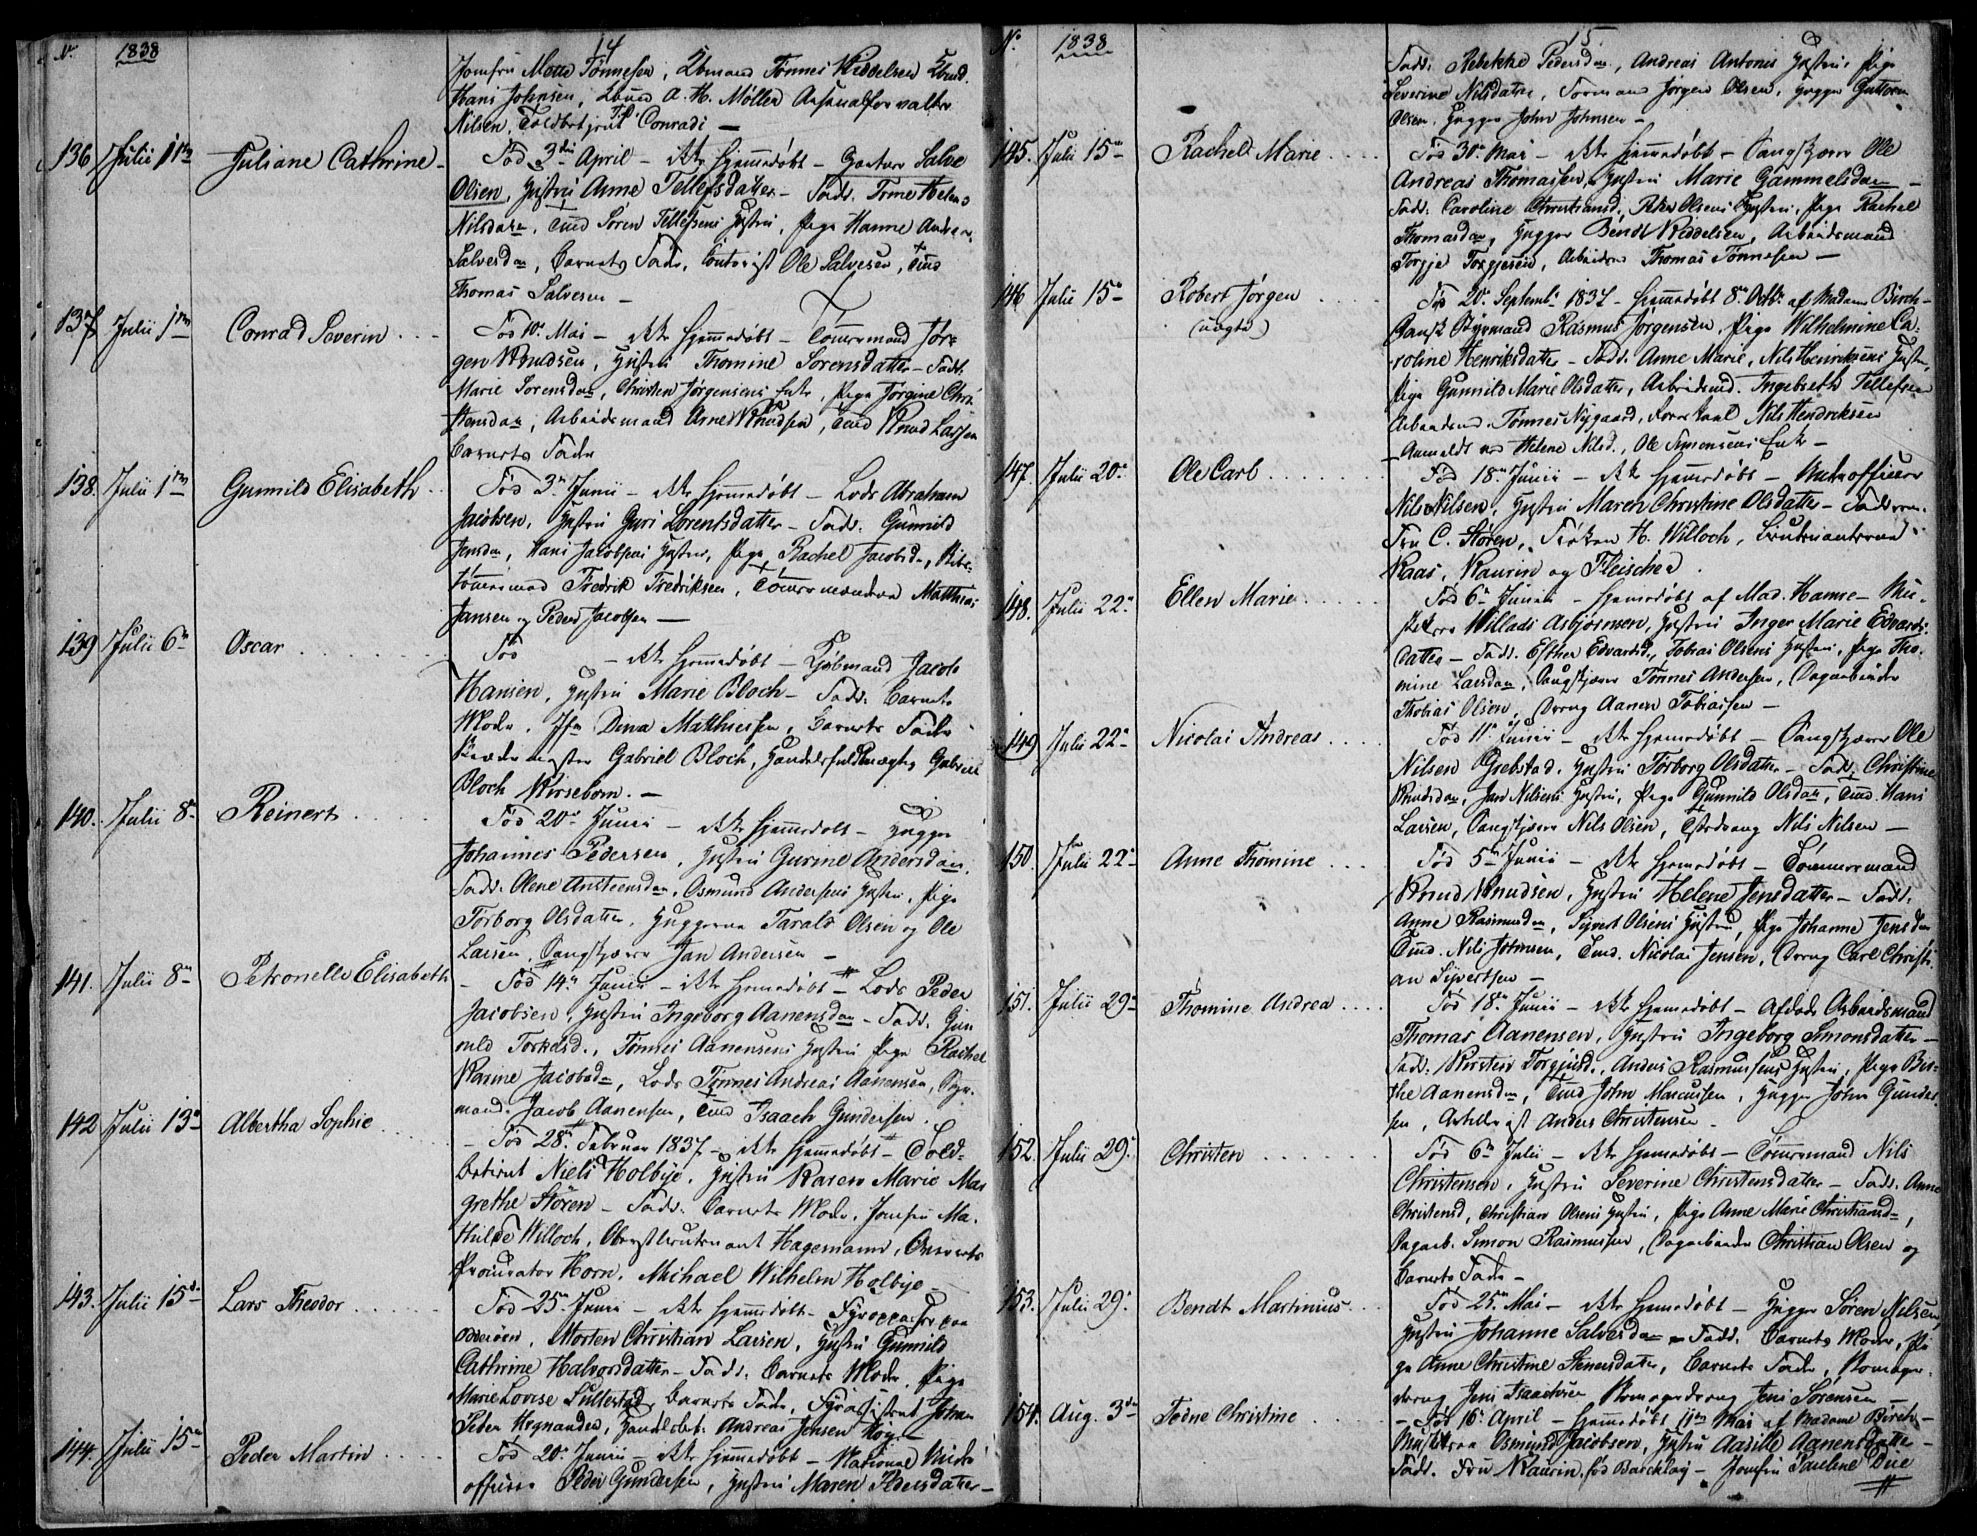 N. 1838 14
Jomfru Mone Tönnesen, Kbmand Tönnes Weddelsen Kbmd.
Hans Johnsen, Kbmd A. H. Möller Arsenalforvalter
Nilsen, Toldbetjent Conradi —
136 Julii 1ste Juliane Cathrine - Fød 3die April – ikke hjemmedøbt – Gartner Salve
Olsen, Hustru Anne Tellefsdatter – Fadd. Trine Helene
Nilsdatr, Tmd Sören Tellefsens Hustru, Pige Hanne Andrea
Salvesdn, Barnets Fader, Contorist Ole Salvesen, Tmd
Thomas Salvesen –
137 Julii 1ste Conrad Severin . . . Fød 10de Mai – ikke hjemmedøbt – Tömmermand Jör-
gen Knudsen, Hustru Thomine Sörensdatter – Fadd.
Marie Sörensdn, Christen Jörgensens Enke, Pige Jörgine Chri-
stensdn, Arbeidsmand Arne Knudsen, Tmd Knud Larsen
Barnets Fader
138. Julii 1ste Gunnild Elisabeth . . Fød 3die Junii – ikke hjemmedøbt – Lods Abraham
Jacobsen, Hustru Guri Lorentsdatter – Fadd. Gunnild
Jensdn, Hans Jacobsens Hustru, Pige Rachel Jacobsd.,
Fredrik Fredriksen, Tömmermændene Matthias
Jansen og Peder Jacobsen —
139 Julii 6te Oscar . . . . Fød – ikke hjemmedøbt – Kjøbmand Jacob
Hansen, Hustru Marie Bloch – Fadd. Barnets
Moder, Jfr Dina Matthiesen, Barnets Fader
Gabriel Bloch, Handelsfuldmægtig Gabriel
Bloch Kirseborn. –
140. Julii 8de Reinert . . . . Fød 20de Junii – ikke hjemmedøbt – Hugger
Johannes Pedersen, Hustru Gurine Andersdan.
Fadd. Olene Ansteensdn, Osmund Andersens Hustru, Pige
Torborg Olsdatter, Huggerne Tarald Olsen og Ole
Larsen, Sangkjærer Jan Andersen –
141. Julii 8de Petronelle Elisabeth – Fød 14de Junii – ikke hjemmedøbt – Lods Peder
Jacobsen, Hustru Ingeborg Aanensdan – Fadd. Gun-
nild Torkelsd., Tönnes Aanensens Hustru Pige Rachel
Karine Jacobsdn, Lods Tönnes Andreas Aanensen,
mand Jacob Aanensen, Tmd Isaach Gundersen.
142 Julii 13de Albertha Sophie . . . – Fød 28de Februar 1837 – ikke hjemmedøbt – Told-
betient Niels Holbye, Hustru Karen Marie Mar-
grethe Stören – Fadd. Barnets Moder, Jomfru Ma-
thilde Willoch, Oberstlieutenant Hagemann,
Procurator Horn, Michael Wilhelm Holbye –
143. Julii 15de Lars Theodor . . . Fød 25de Junii – ikke hjemmedøbt – Fyropasser paa
Odderöen, Morten Christian Larsen, Hustru Gunnild
Cathrine Halvorsdatter – Fadd. Barnets Moder, Pige
Marie Lovise Sullestad, Barnets Fader, Fyrassistent Johan
Peder Hegnander, Handelsbet. Andreas Jensen Höy –
144. Julii 15de Peder Martin . . . Fød 20de Junii – ikke hjemmedøbt – National Under-
officeer Peder Gundersen, Hustru Maren Pedersdatter –
No 1838 15
Fadd. Rebekke Pedersdan, Andreas Antonis Hustru, Pige
Severine Nilsdatter, Formand Jörgen Olsen, Hugger Guttorm
Olsen, Hugger John Johnsen –
145. Julii 15de Rachell Marie . . . . Fød 30te Mai – ikke hjemmedøbt – Sangkjærer Ole
Andreas Thomassen, Hustru Marie Gammelsdan –
Fadd. Caroline Christiansd., Peter Olsens Hustru, Pige Rachel
Thomasdan, Hugger Bendt Weddelsen, Arbeidsmand
Torgje Torgjesen, Arbeidsm Thomas Tönnesen –
146 Julii 15de Robert Jörgen . . . . (uægte) Fød 20de Septembr 1837 – hjemmedøbt 8de Octbr af Madam Birch –
Dansk Styrmand Rasmus Jörgensen, Pige Wilhelmine Ca-
roline Henriksdatter – Fadd. Anne Marie, Nils Henriksens Hustru,
Pige Gunnild Marie Olsdatter, Arbeidsmd. Ingebreth Tellefsen
Arbeidsmd. Tönnes Nygaard, Nils Hendriksen
– Anmeldt ved Helene Nilsd., Ole Simonsens Enke –
147. Julii 20de Ole Carl . . . . Fød 18de Junii – ikke hjemmedøbt – Underofficeer
Nils Nilsen, Hustru Maren Christine Olsdatter – Faddere.
Fru C. Stören, Fröken H. Willoch, Lieutenanterne
Kaas, Kaurin og Fleischer.
148. Julii 22de Ellen Marie . . . . Fød 6te Junii – hjemmedøbt af Mad. Hanne – Mu-
sketeer Willads Asbjörnsen, Hustru Inger Marie Edvards-
datter – Fadd. Esther Edvardsd., Tobias Olsens Hustru, Pige Tho-
mine Larsdan, Sangkjærer Tönnes Andersen, Dagarbeider
Thobias Olsen, Dreng Aanen Tobiassen –
149 Julii 22de Nicolai Andreas . . . . Fød 11te Junii – ikke hjemmedøbt – Sangkjærer Ole
Nilsen Grebstad, Hustru Torborg Olsdatter – Fadd. Christine
Knudsdan, Jan Nilsens Hustru, Pige Gunnild Olsdan, Tmd Hans
Larsen, Sangkjærer Nils Olsen, Nils Nilsen –
150. Julii 22de Anne Thomine . . . Fød 5te Junii – ikke hjemmedøbt – Tömmermand
Knud Knudsen, Hustru Helene Jensdatter – Fadd.
Anne Rasmusdn, Syvert Olsens Hustru, Pige Johanne Jensdan
Tmd. Nils Johnsen, Tmd. Nicolai Jensen, Dreng Carl Christi-
an Syvertsen –
151. Julii 29de Thomine Andrea . . . . Fød 18de Junii – ikke hjemmedøbt – Afdøde Arbeidsmand
Thomas Aanensen, Hustru Ingeborg Simonsdatter –
Fadd. Kirsten Torgjusd., Anders Rasmussens Hustru, Pige Bir-
the Aanensdn, Tmd John Marcussen, Hugger John Gunder-
sen, Artillerist Anders Christensen –
152. Julii 29de Christen . . . . Fød 6te Julii – ikke hjemmedøbt – Tömmermand Nils
Christensen, Hustru Severine Christensdatter – Fadd. Anne
Christensd, Christian Olsens Hustru, Pige Anne Marie Christiansdn,
Dagarb. Simon Rasmussen, Dagarbeider Christian Olsen og
Barnets Fader –
153. Julii 29de Bendt Martinius . . . Fød 25de Mai – ikke hjemmedøbt – Hugger Sören Nilsen,
Hustru Johanne Salvesdan – Fadd. Barnets Moder, Pi-
ge Anne Christine Stenersdatter, Barnets Fader,
dreng Jens Isaachsen Jens Sörensen –
154. Aug. 3die Tedne Christine . . – Fød 16de April – hjemmedøbt 11te Mai af Madame Birch –
Musketeer Osmund Jacobsen, Hustru Aasille Aanensdatter –
Fadd. Fru Kaurin, fød Barchlay – Jomfru Pauline Due